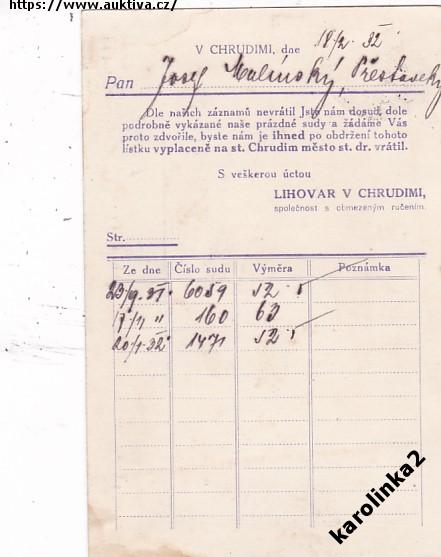 https://www.auktiva.cz/
V CHRUDIMI, dne 18/2 32
Pan Josef Malínský, Přestavlky
Dle našich záznamů nevrátil Jste nám dosud, dole
podrobně vykázané naše prázdné sudy a žádáme Vás
proto zdvořile, byste nám je ihned po obdržení tohoto
lístku vyplaceně na st. Chrudim město st. dr. vrátil.
S veškerou úctou
LIHOVAR V CHRUDIMI,
společnost s obmezeným ručením.
Str.
Ze dne Číslo sudu Výměra Poznámka
23/9 31. 6059 52
17/11 " 160 63
20/1 32 1471 52
karolinka2